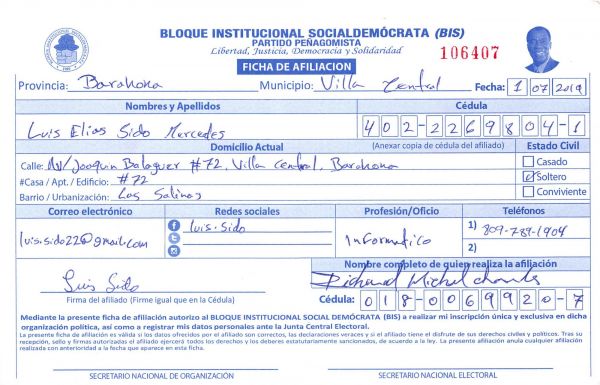 BLOQUE INSTITUCIONAL SOCIALDEMÓCRATA (BIS)
PARTIDO PEÑAGOMISTA
Libertad, Justicia, Democracia y Solidaridad
106407
FICHA DE AFILIACION
Provincia: Barahona Municipio: Villa Central Fecha: 1 07 2019
Nombres y Apellidos Cédula
Luis Elias Sido Mercedes 402-2269804-1
Domicilio Actual (Anexar copia de cédula del afiliado) Estado Civil
Calle: Av/Joaquin Balaguer #72, Villa Central, Barahona Casado
#Casa / Apt. / Edificio: #72 Soltero
Barrio / Urbanización: Las Salinas Conviviente
Correo electrónico Redes sociales Profesión/Oficio Teléfonos
luis.sido22@gmail.com luis.sido Informatico 1) 809-789-1904
2)
Nombre completo de quien realiza la afiliación
Luis Sido Michel
Firma del afiliado (Firme igual que en la Cédula) Cédula: 018-0069920-7
Mediante la presente ficha de afiliación autorizo al BLOQUE INSTITUCIONAL SOCIAL DEMÓCRATA (BIS) a realizar mi inscripción única y exclusiva en dicha
organización política, así como a registrar mis datos personales ante la Junta Central Electoral.
La presente ficha de afiliación es válida si los datos ofrecidos por el afiliado son correctos, las declaraciones veraces y si el afiliado tiene el disfrute de sus derechos civiles y políticos. Tras su
recepción, sello y firmas autorizadas el afiliado ejercerá todos los derechos y los deberes estatutariamente sancionados, de acuerdo a la ley. La presente afiliación anula cualquier afiliación
realizada con anterioridad a la fecha que aparece en esta ficha.
SECRETARIO NACIONAL DE ORGANIZACIÓN SECRETARIO NACIONAL ELECTORAL